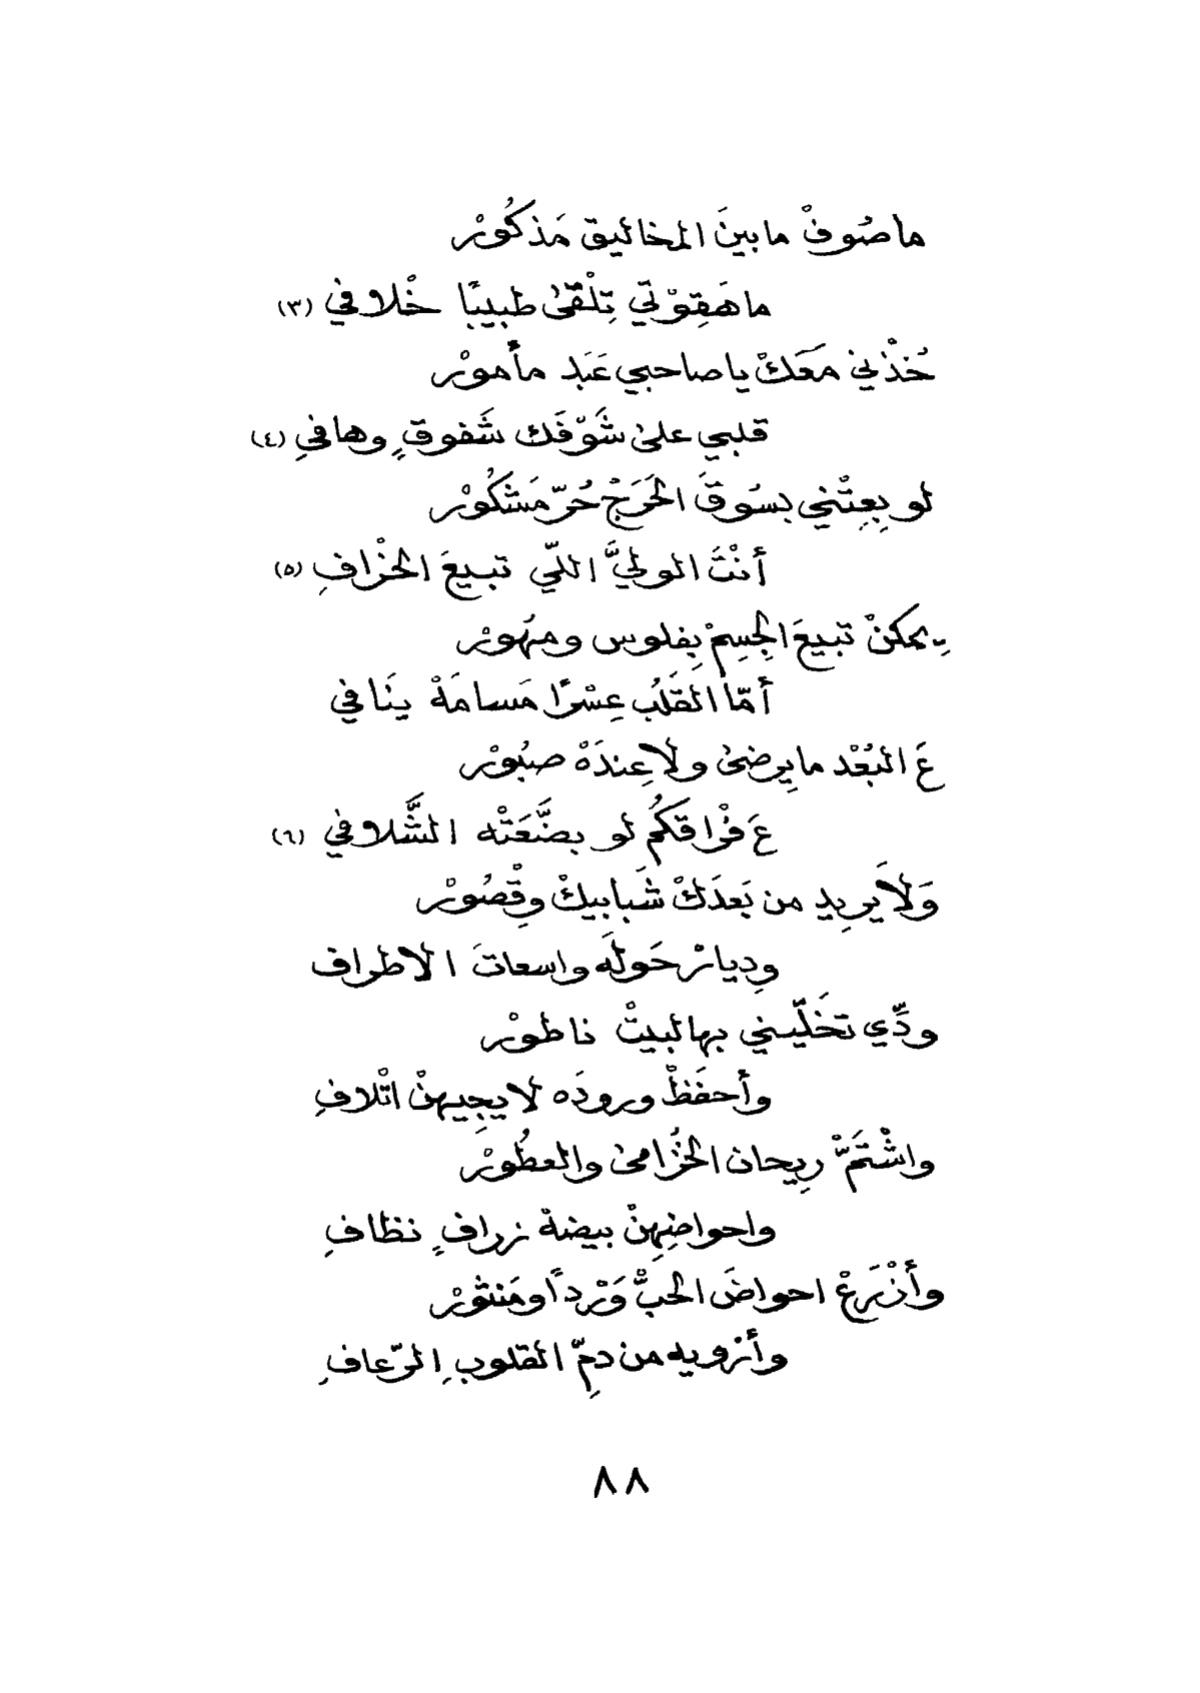 ما صُوفْ ما بينَ المخاليق مَذكُورْ
ما هَقِوْتي تِلْقىٰ طبيبًا خْلافي (٣)
خُذْني مَعَكْ يا صاحبي عَبَد مأمورْ
قلبي علىٰ شَوّفَك شَفوقٍ وهافي (٤)
لو بِعِتْني بسُوقَ الحَرَجْ حُرّ مَشكُورْ
أنْتَ الوليَّ اللّي تبيعَ الخْزافِ (٥)
يمكنْ تبيعَ الجِسِمْ بِفلوس ومهُورْ
أمّا القَلبُ عِسْرًا مَسامَهْ ينَافي
عَ البُعْد ما يِرضىٰ ولا عِندَهْ صبُورْ
عَ فْراقكُم لو بضَّعَتْه الشَّلافي (٦)
وَلاَ يريِد من بَعدَكْ شَبابيكْ وقْصُورْ
ودِيارْ حَولَه واسعاتَ الاطراف
ودِّي تخَلّيني بهالبيتْ ناطورْ
وأحفَظْ ورودَه لا يجِيهنْ اتْلافِ
واشْتَمّ ريِحان الخُزامىٰ والعطُورْ
واحواضِهِنْ بيضهْ نزرافٍ نظافِ
وأزْرَعْ احواضَ الحبّْ وَرْداً ومَنثورْ
وأرْويه من دمِّ القلوبِ الرّعافِ
٨٨